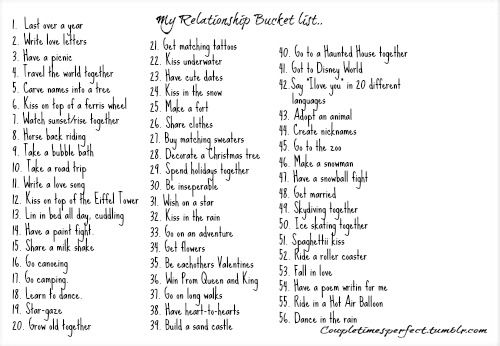 My Relationship Bucket List..
1. Last over a year
2. Write love letters
3. Have a picnic
4. Travel the world together
5. Carve names into a tree
6. Kiss on top of a ferris wheel
7. Watch sunset/rise together
8. Horse back riding
9. Take a bubble bath
10. Take a road trip
11. Write a love song
12. Kiss on top of the Eiffel Tower
13. Lin in bed all day, cuddling
14. Have a paint fight.
15. Share a milk shake
16. Go canoeing
17. Go camping.
18. Learn to dance.
19. Star-gaze
20. Grow old together
21. Get matching tattoos
22. Kiss underwater
23. Have cute dates
24. Kiss in the snow
25. Make a fort
26. Share clothes
27. Buy matching sweaters
28. Decorate a Christmas tree
29. Spend holidays together
30. Be inseperable
31. Wish on a star
32. Kiss in the rain
33. Go on an adventure
34. Get flowers
35. Be eachothers Valentines
36. Win Prom Queen and King
37. Go on long walks
38. Have heart-to-hearts
39. Build a sand castle
40. Go to a Haunted House together
41. Got to Disney World
42. Say "I love you" in 20 different
languages
43. Adopt an animal
44. Create nicknames
45. Go to the zoo
46. Make a snowman
47. Have a snowball fight
48. Get married
49. Skydiving together
50. Ice skating together
51. Spaghettii kiss
52. Ride a roller coaster
53. Fall in love
54. Have a poem writin for me
55. Ride in a Hot Air Balloon
56. Dance in the rain
Coupletimesperfect.tumblr.com